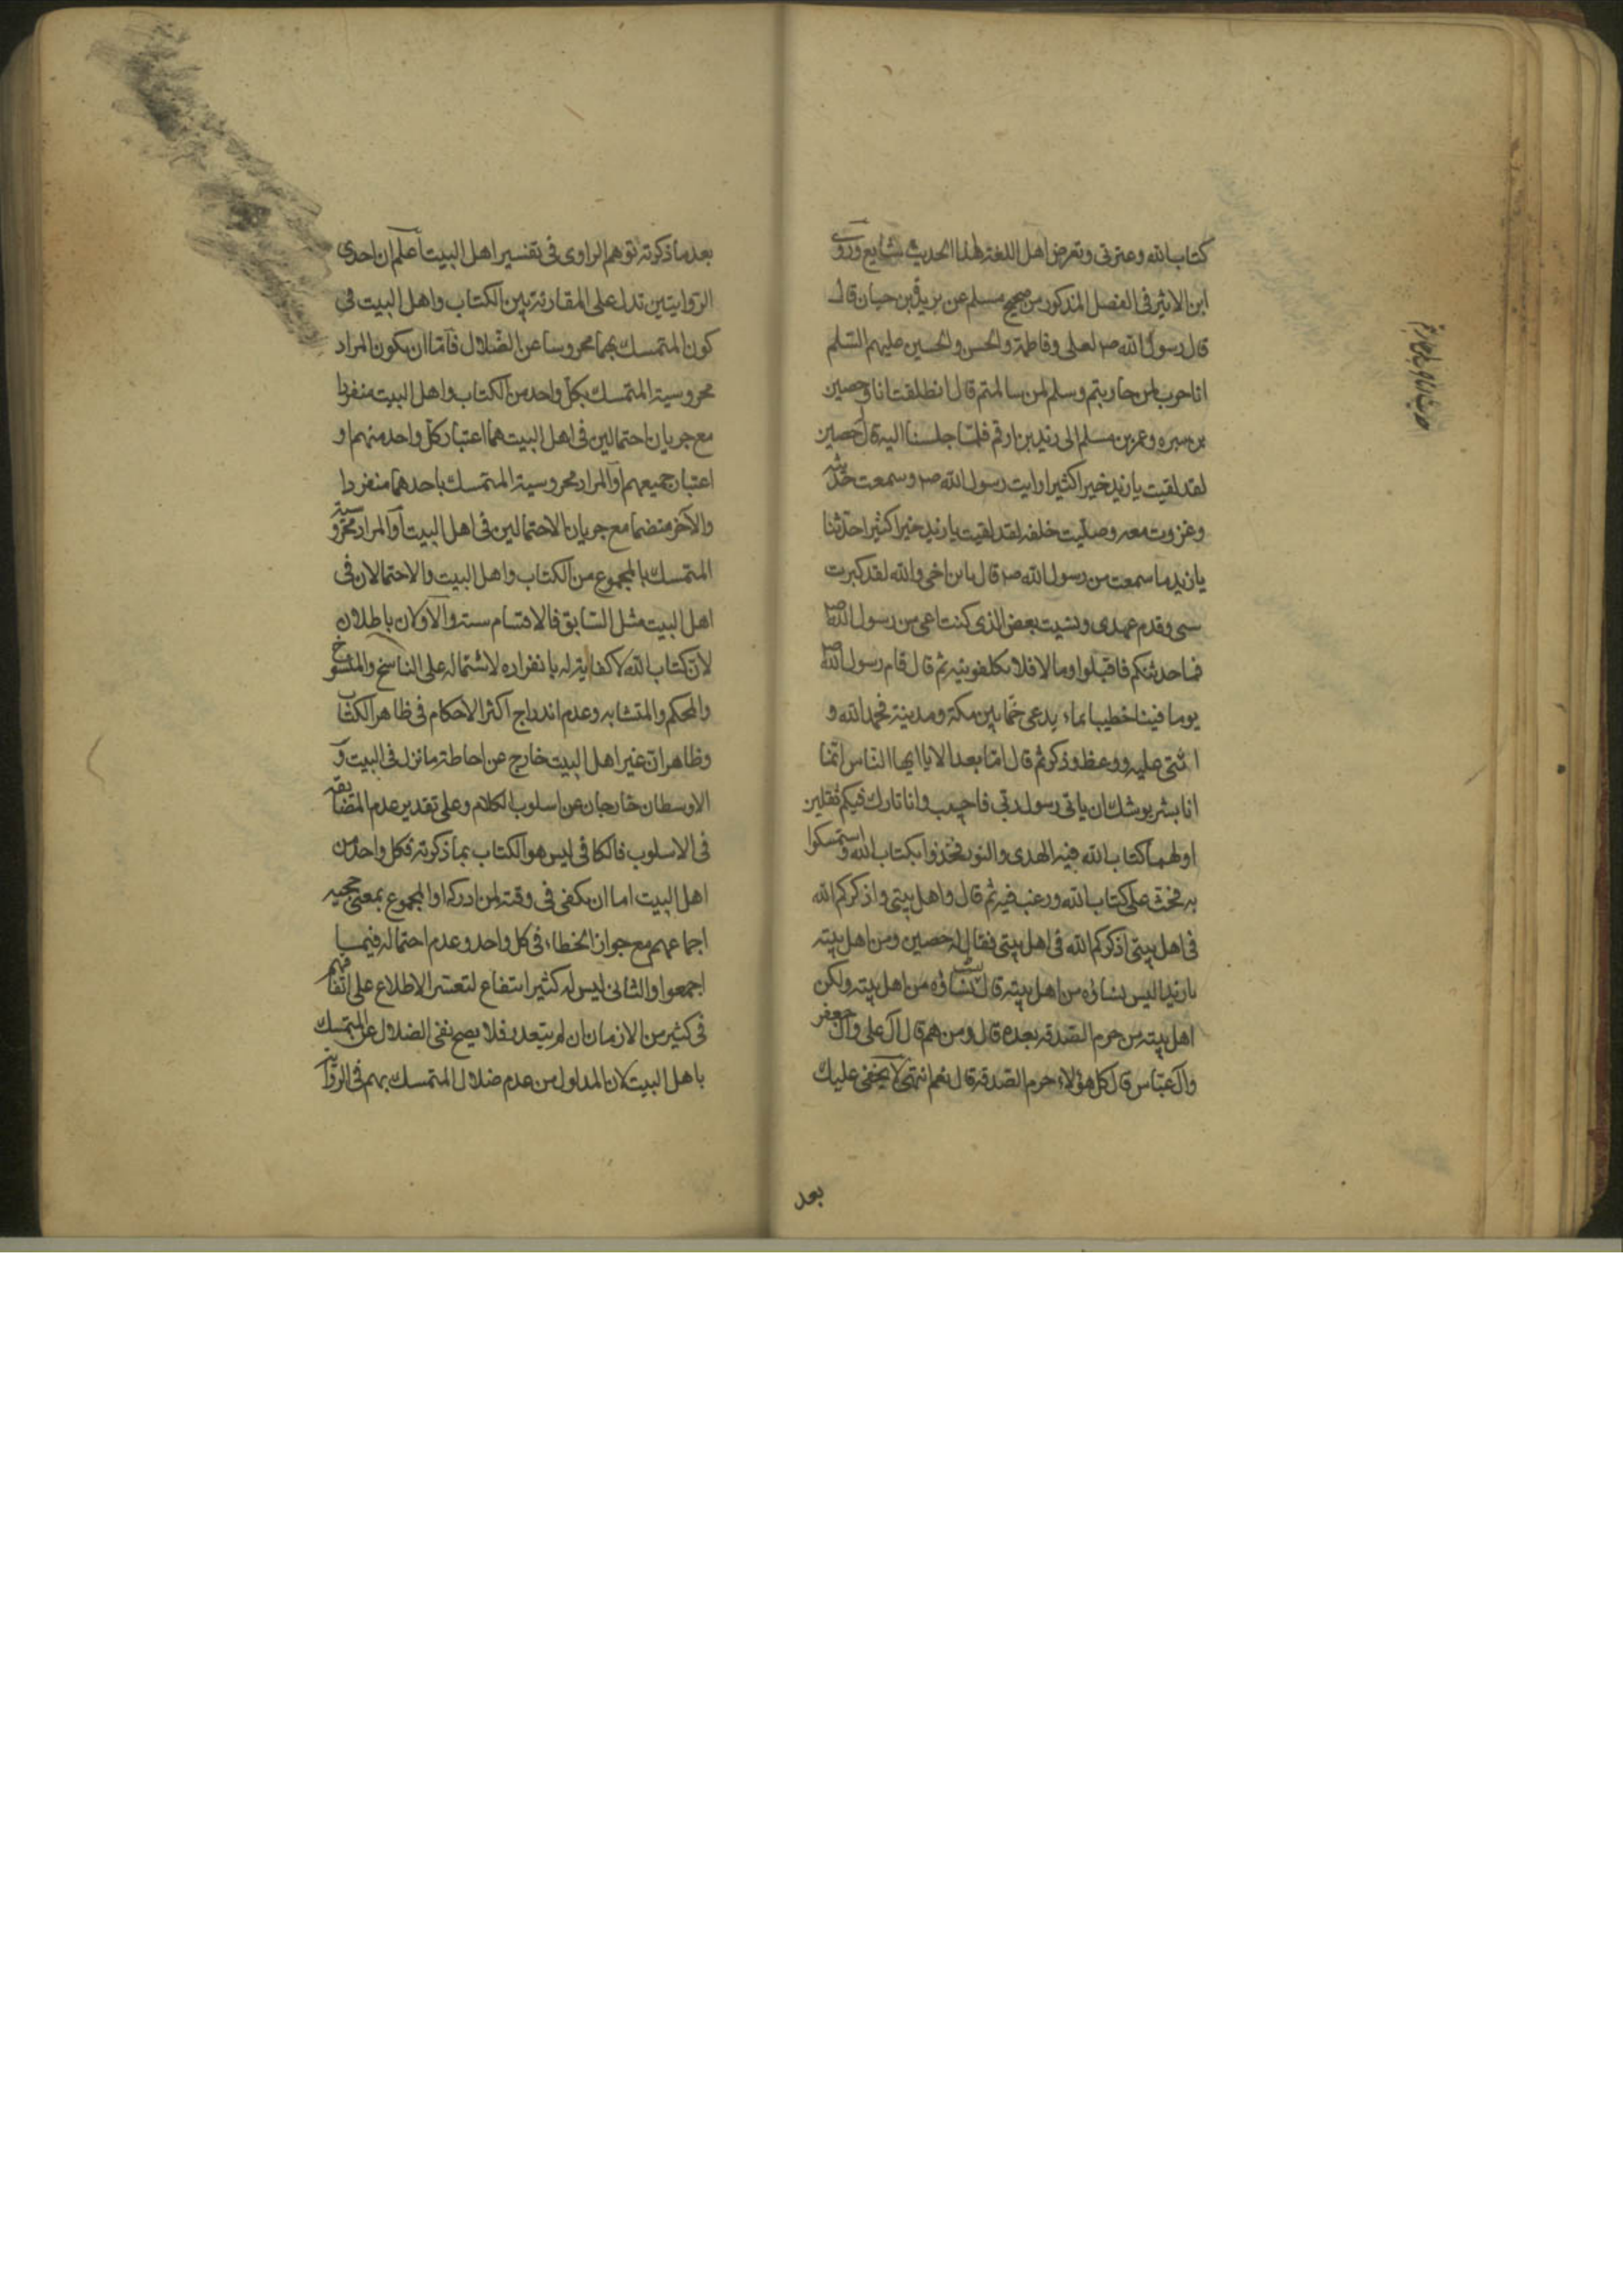 كتاب الله وعترتى وتعرض اهل اللغة لهذا الحديث شايع وروى
ابن الاثير فى الفصل المذكور من صحيح مسلم عن يزيد بن حيان قال
قال رسول الله ص لعلى وفاطمة والحسن والحسين عليهم السلم
انا حرب لمن حاربتم وسلم لمن سالمتم قال انطلقت انا وحصين
بن سبره وعمر بن مسلم الى زيد بن ارقم فلمّا جلسنا اليه قال حصين
لقد لقيت يا زيد خيرا كثيرا رايت رسول الله ص وسمعت حديثه
وغزوت معه وصلّيت خلفه لقد لقيت يا زيد خيرا كثيرا حدّثنا
يا زيد ما سمعت من رسول الله ص قال يا بن اخى والله لقد كبرت
سنى وقدم عهدى ونسيت بعض الذى كنت اعى من رسول الله ص
فما حدثتكم فاقبلوا وما لا فلا تكلفونيه ثم قال قام رسول الله ص
يوما فينا خطيبا بماء يدعى خمّا بين مكة ومدينة فحمد الله و
اثنى عليه ووعظ وذكر ثم قال امّا بعد الا يا ايها النّاس انّما
انا بشر يوشك ان ياتى رسول ربّى فاجيب وانا تارك فيكم ثقلين
اولهما كتاب الله فيه الهدى والنور فخذوا بكتاب الله واستمسكوا
به فحثّ على كتاب الله ورغب فيه ثم قال واهل بيتى واذكركم الله
فى اهل بيتى اذكركم الله فى اهل بيتى فقال له حصين ومن اهل بيته
يا زيد اليس نساؤه من اهل بيته قال نساؤه من اهل بيته ولكن
اهل بيته من حرم الصّدقة بعده قال ومن هم قال آل على وآل جعفر
وآل عبّاس قال كل هؤلاء حرم الصّدقة قال نعم انتهى لا يخفى عليك
بعد
بعد ما ذكرته توهم الراوى فى تفسير اهل البيت اعلم ان احدى
الرّوايتين تدل على المقارنة بين الكتاب واهل البيت فى
كون المتمسك بهما محروسا عن الضّلال فامّا ان يكون المراد
محروسية المتمسك بكلّ واحد من الكتاب واهل البيت منفردا
مع جريان احتمالين فى اهل البيت هما اعتبار كلّ واحد منهم او
اعتبار جميعهم او المراد محروسية المتمسك باحدهما منفردا
والآخر منضما مع جريان الاحتمالين فى اهل البيت او المراد محروسية
المتمسك بالمجموع من الكتاب واهل البيت والاحتمالان فى
اهل البيت مثل السّابق فالاقسام ستة والاولان باطلان
لان كتاب الله لا كفاية له بانفراده لاشتماله على الناسخ والمنسوخ
والمحكم والمتشابه وعدم اندراج اكثر الاحكام فى ظاهر الكتاب
وظاهر ان غير اهل البيت خارج عن احاطة ما نزل فى البيت و
الاوسطان خارجان عن اسلوب الكلام وعلى تقدير عدم المضايقه
فى الاسلوب فالكافى ليس هو الكتاب بما ذكرته فكل واحد من
اهل البيت اما ان يكفى فى وقته لمن ادركه او المجموع بمعنى حجيه
اجماعهم مع جواز الخطاء فى كل واحد وعدم احتماله فيما
اجمعوا والثانى ليس له كثير انتفاع لتعسّر الاطلاع على اتفاقهم
فى كثير من الازمان ان لم يتعذر فلا يصح نفى الضلال عن المتمسك
باهل البيت لان المداول من عدم ضلال المتمسك بهم فى الرواية